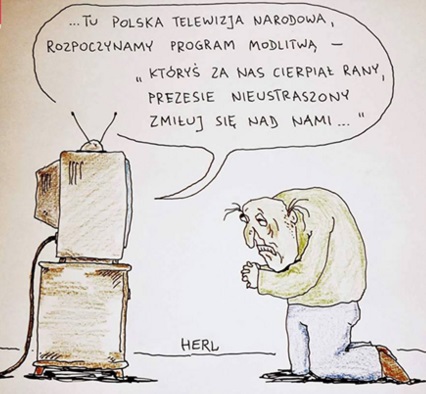 ...TU POLSKA TELEWIZJA NARODOWA,
ROZPOCZYNAMY PROGRAM MODLITWĄ —
„KTÓRYŚ ZA NAS CIERPIAŁ RANY,
PREZESIE NIEUSTRASZONY
ZMIŁUJ SIĘ NAD NAMI..."
HERL